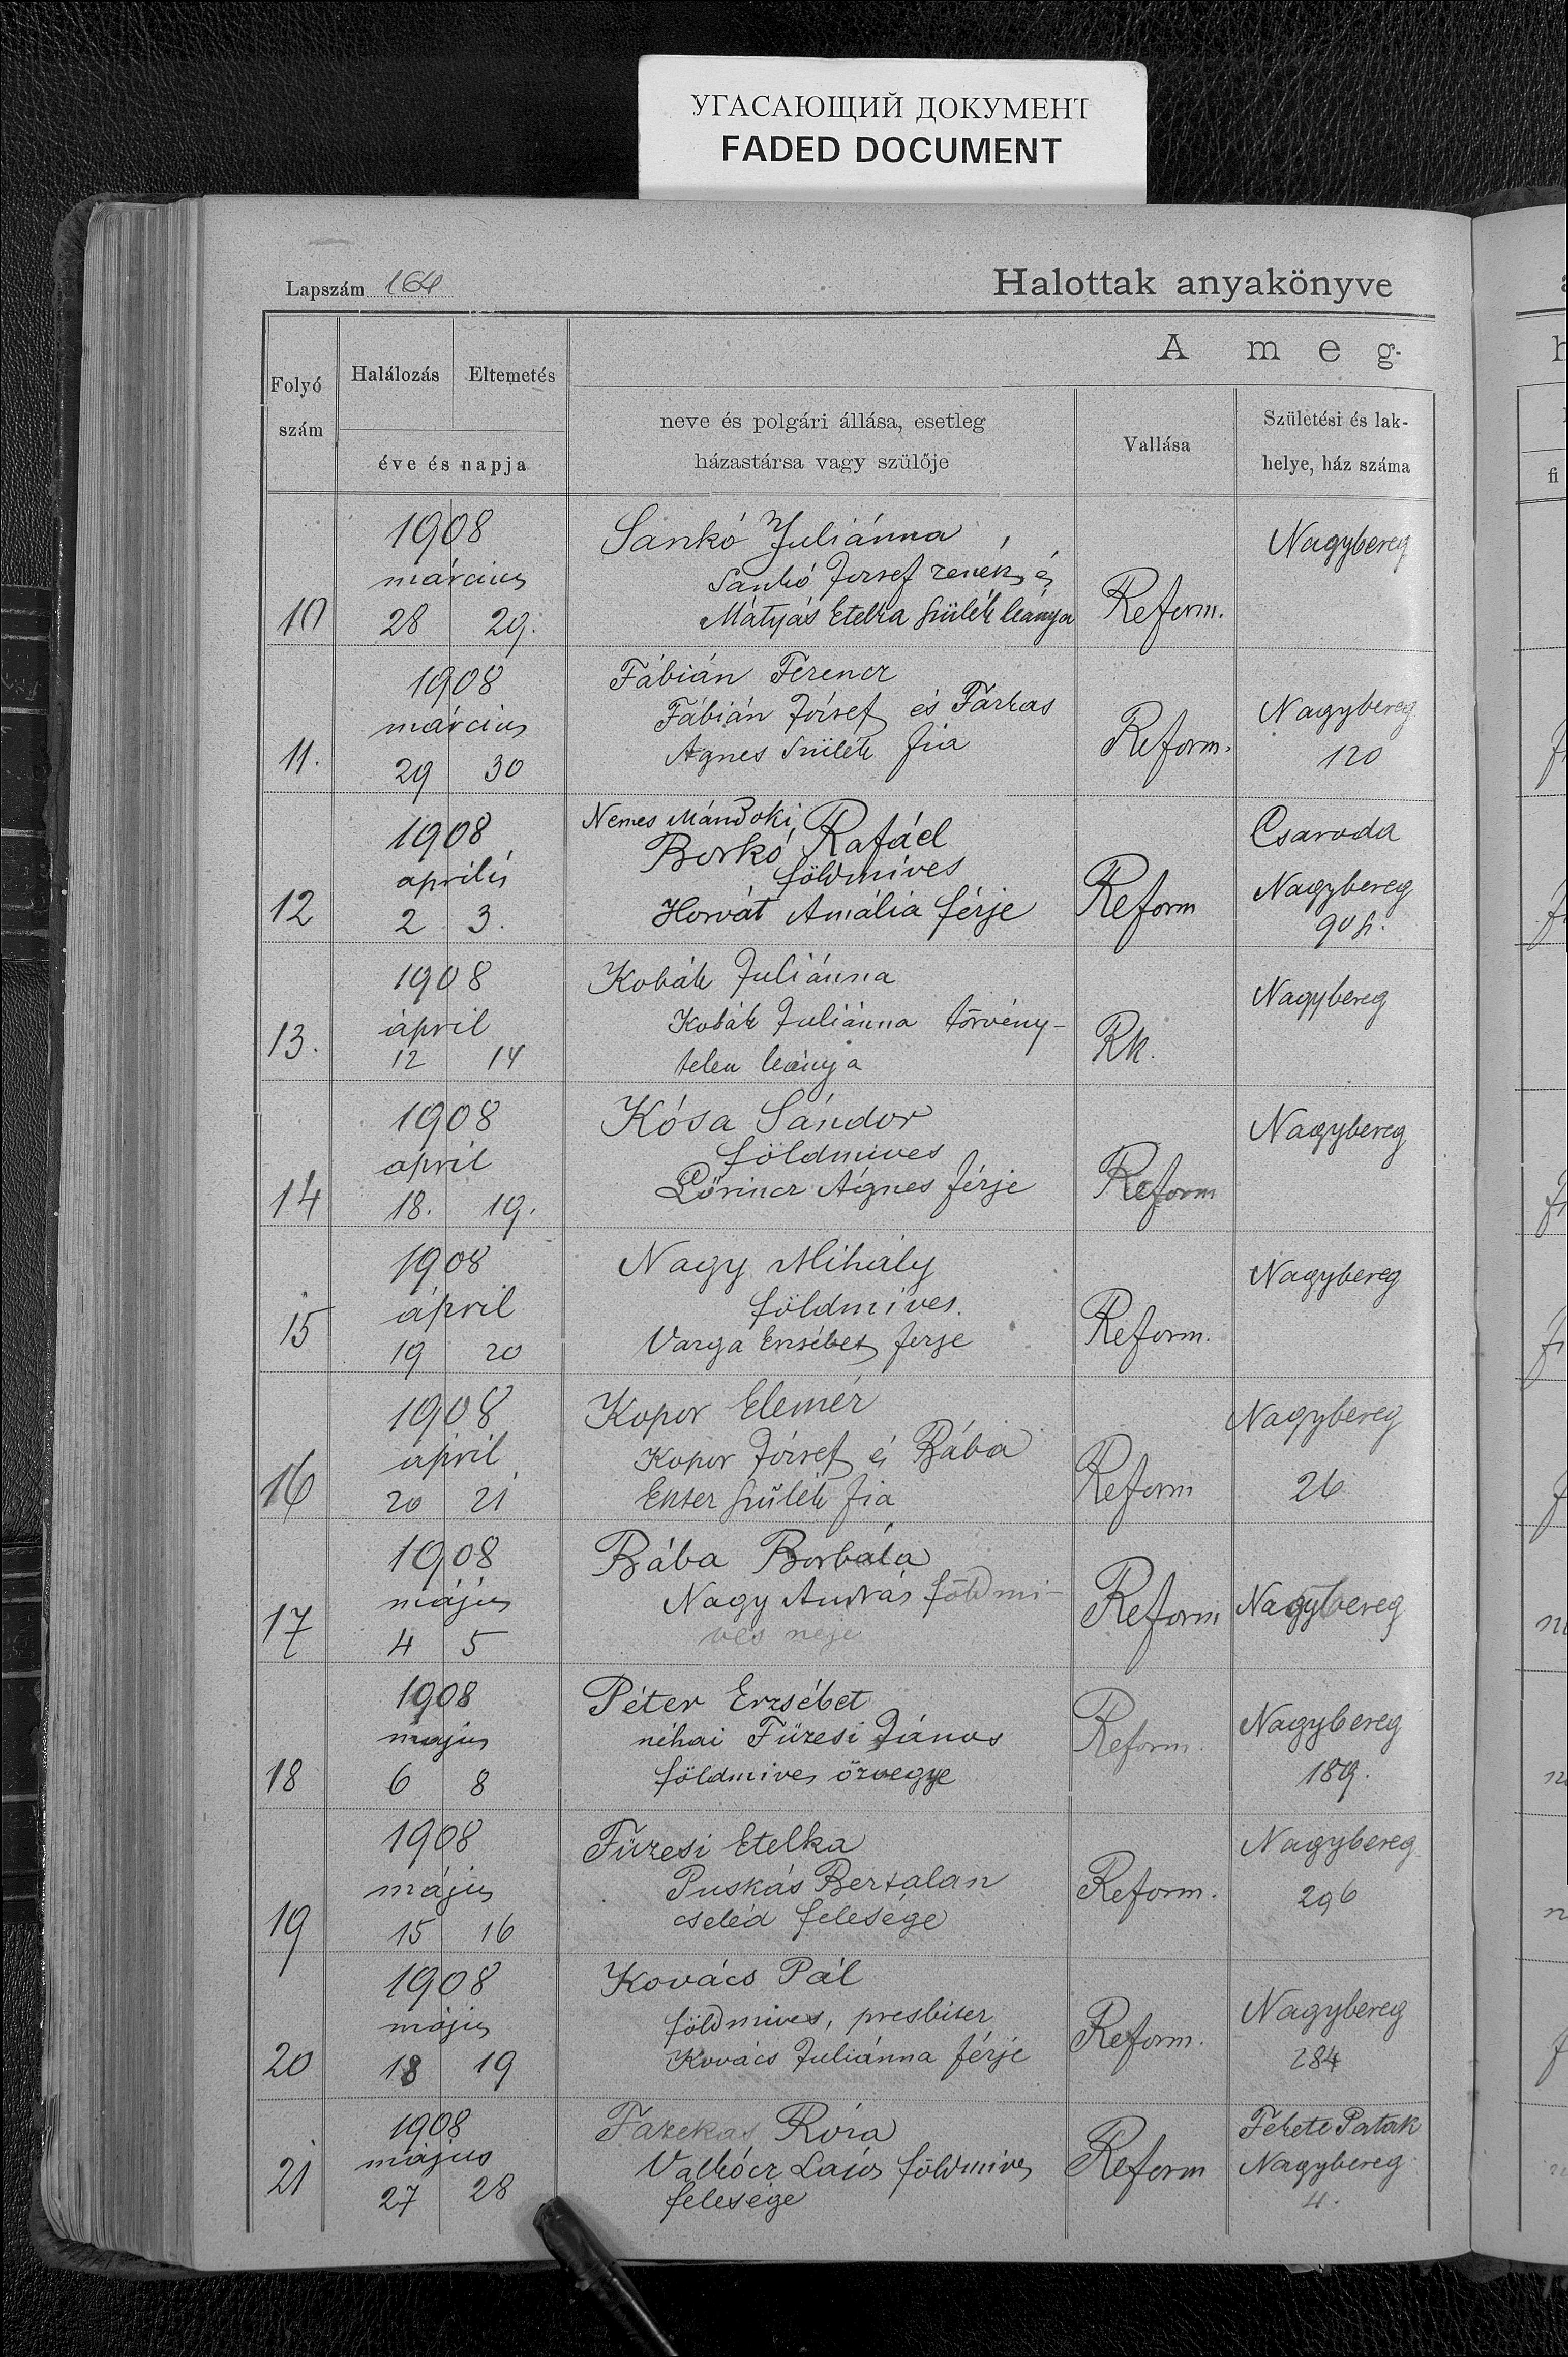 УГАСАЮЩИЙ ДОКУМЕНТ
FADED DOCUMENT
Lapszám 164
Halottak anyakönyve
A meg-
Folyó szám
Halálozás
Eltemetés
éve és napja
neve és polgári állása, esetleg
házastársa vagy szülője
Vallása
Születési és lak-
helye, ház száma
1908
március
10 28 29.
Sankó Juliánna
Sankó József zenész és
Mátyás Etelka szülék leánya
Reform.
Nagybereg
1908
március
11. 29 30
Fábián Ferencz
Fábián József és Farkas
Ágnes szülék fia
Reform.
Nagybereg
120
1908
április
12 2 3.
Nemes Mándoki
Borkó Rafáel
földmíves
Horvát Amália férje
Reform
Csaroda
Nagybereg
90 h.
1908
ápril
13. 12 14
Kobák Juliánna
Kobák Juliánna törvény-
telen leánya
Rk.
Nagybereg
1908
april
14 18. 19.
Kósa Sándor
földmives
Lőrincz Ágnes férje
Reform
Nagybereg
1908
ápril
15 19 20
Nagy Mihály
földmíves.
Varga Erzsébet ferje
Reform.
Nagybereg
1908
april
16 20 21
Kopor Elemér
Kopor József és Bába
Eszter szülék fia
Reform
Nagybereg
26
1908
május
17 4 5
Bába Borbála
Nagy András földmi-
ves neje
Reform
Nagybereg
1908
május
18 6 8
Péter Erzsébet
néhai Füzesi János
földmives özvegye
Reform.
Nagybereg
189.
1908
május
19 15 16
Füzesi Etelka
Puskás Bertalan
cseléd felesége
Reform.
Nagybereg
296
1908
május
20 18 19
Kovács Pál
földmives, presbiter
Kovács Juliánna férje
Reform.
Nagybereg
284
1908
május
21 27 28
Fazekas Róza
Valkócz Lajos földmives
felesége
Reform
Fekete Patak
Nagybereg
4.